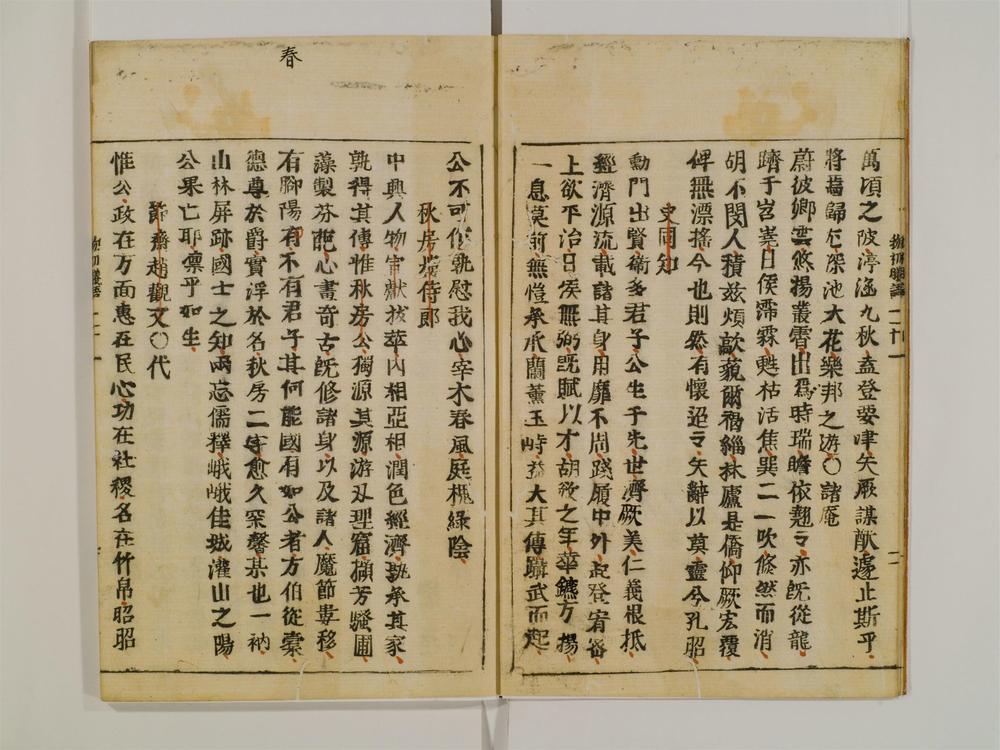 萬頃之陂渟涵九秋盍登嬰津矢厥謀猷遽止斯乎
將蕩歸尼深池大花樂邦之遊〇諸庵
蔚彼鄉雲悠揚叢霄出爲時瑞瞻依翹々亦既從龍
躋于岧嶤日俟霈霖甦枯活焦巽二一吹倏然而消
胡不閔人積茲煩歊藐爾褐緇林廬是僑仰厥宏覆
俾無漂搖今也則然有懷迢々矢辭以莫靈兮孔昭
史同知
勳門出賢衛多君子公生于先世濟厥美仁義根抵
經濟源流載諸其身用靡不周踐履中外起登宥密
上欲下治日俟無弼既賦以才胡發之年華鑣方揚
一息莫前無愷承承蘭薰玉峙益大其傳蹈武而起
春
公不可作孰慰我心宰木春風庭槐綠陰
秋房樓侍郎
中興人物甯獻拔萃內相亞相潤色經濟孰承其家
孰得其傳惟秋房公獨源其源游刃理窟擷芳騷圃
藻製芬葩心畫奇古既修諸身以及諸人麾節婁移
有腳陽有不有君子其何能國有如公者方伯從橐
德尊於爵實浮於名秋房二字愈久罙馨某也一衲
山林屏跡國士之知兩忘儒釋峨峨佳城瀍山之陽
公果亡耶凜乎如生
節齋趙觀文〇代
惟公政在方面惠在民心功在社稷名在竹帛昭昭